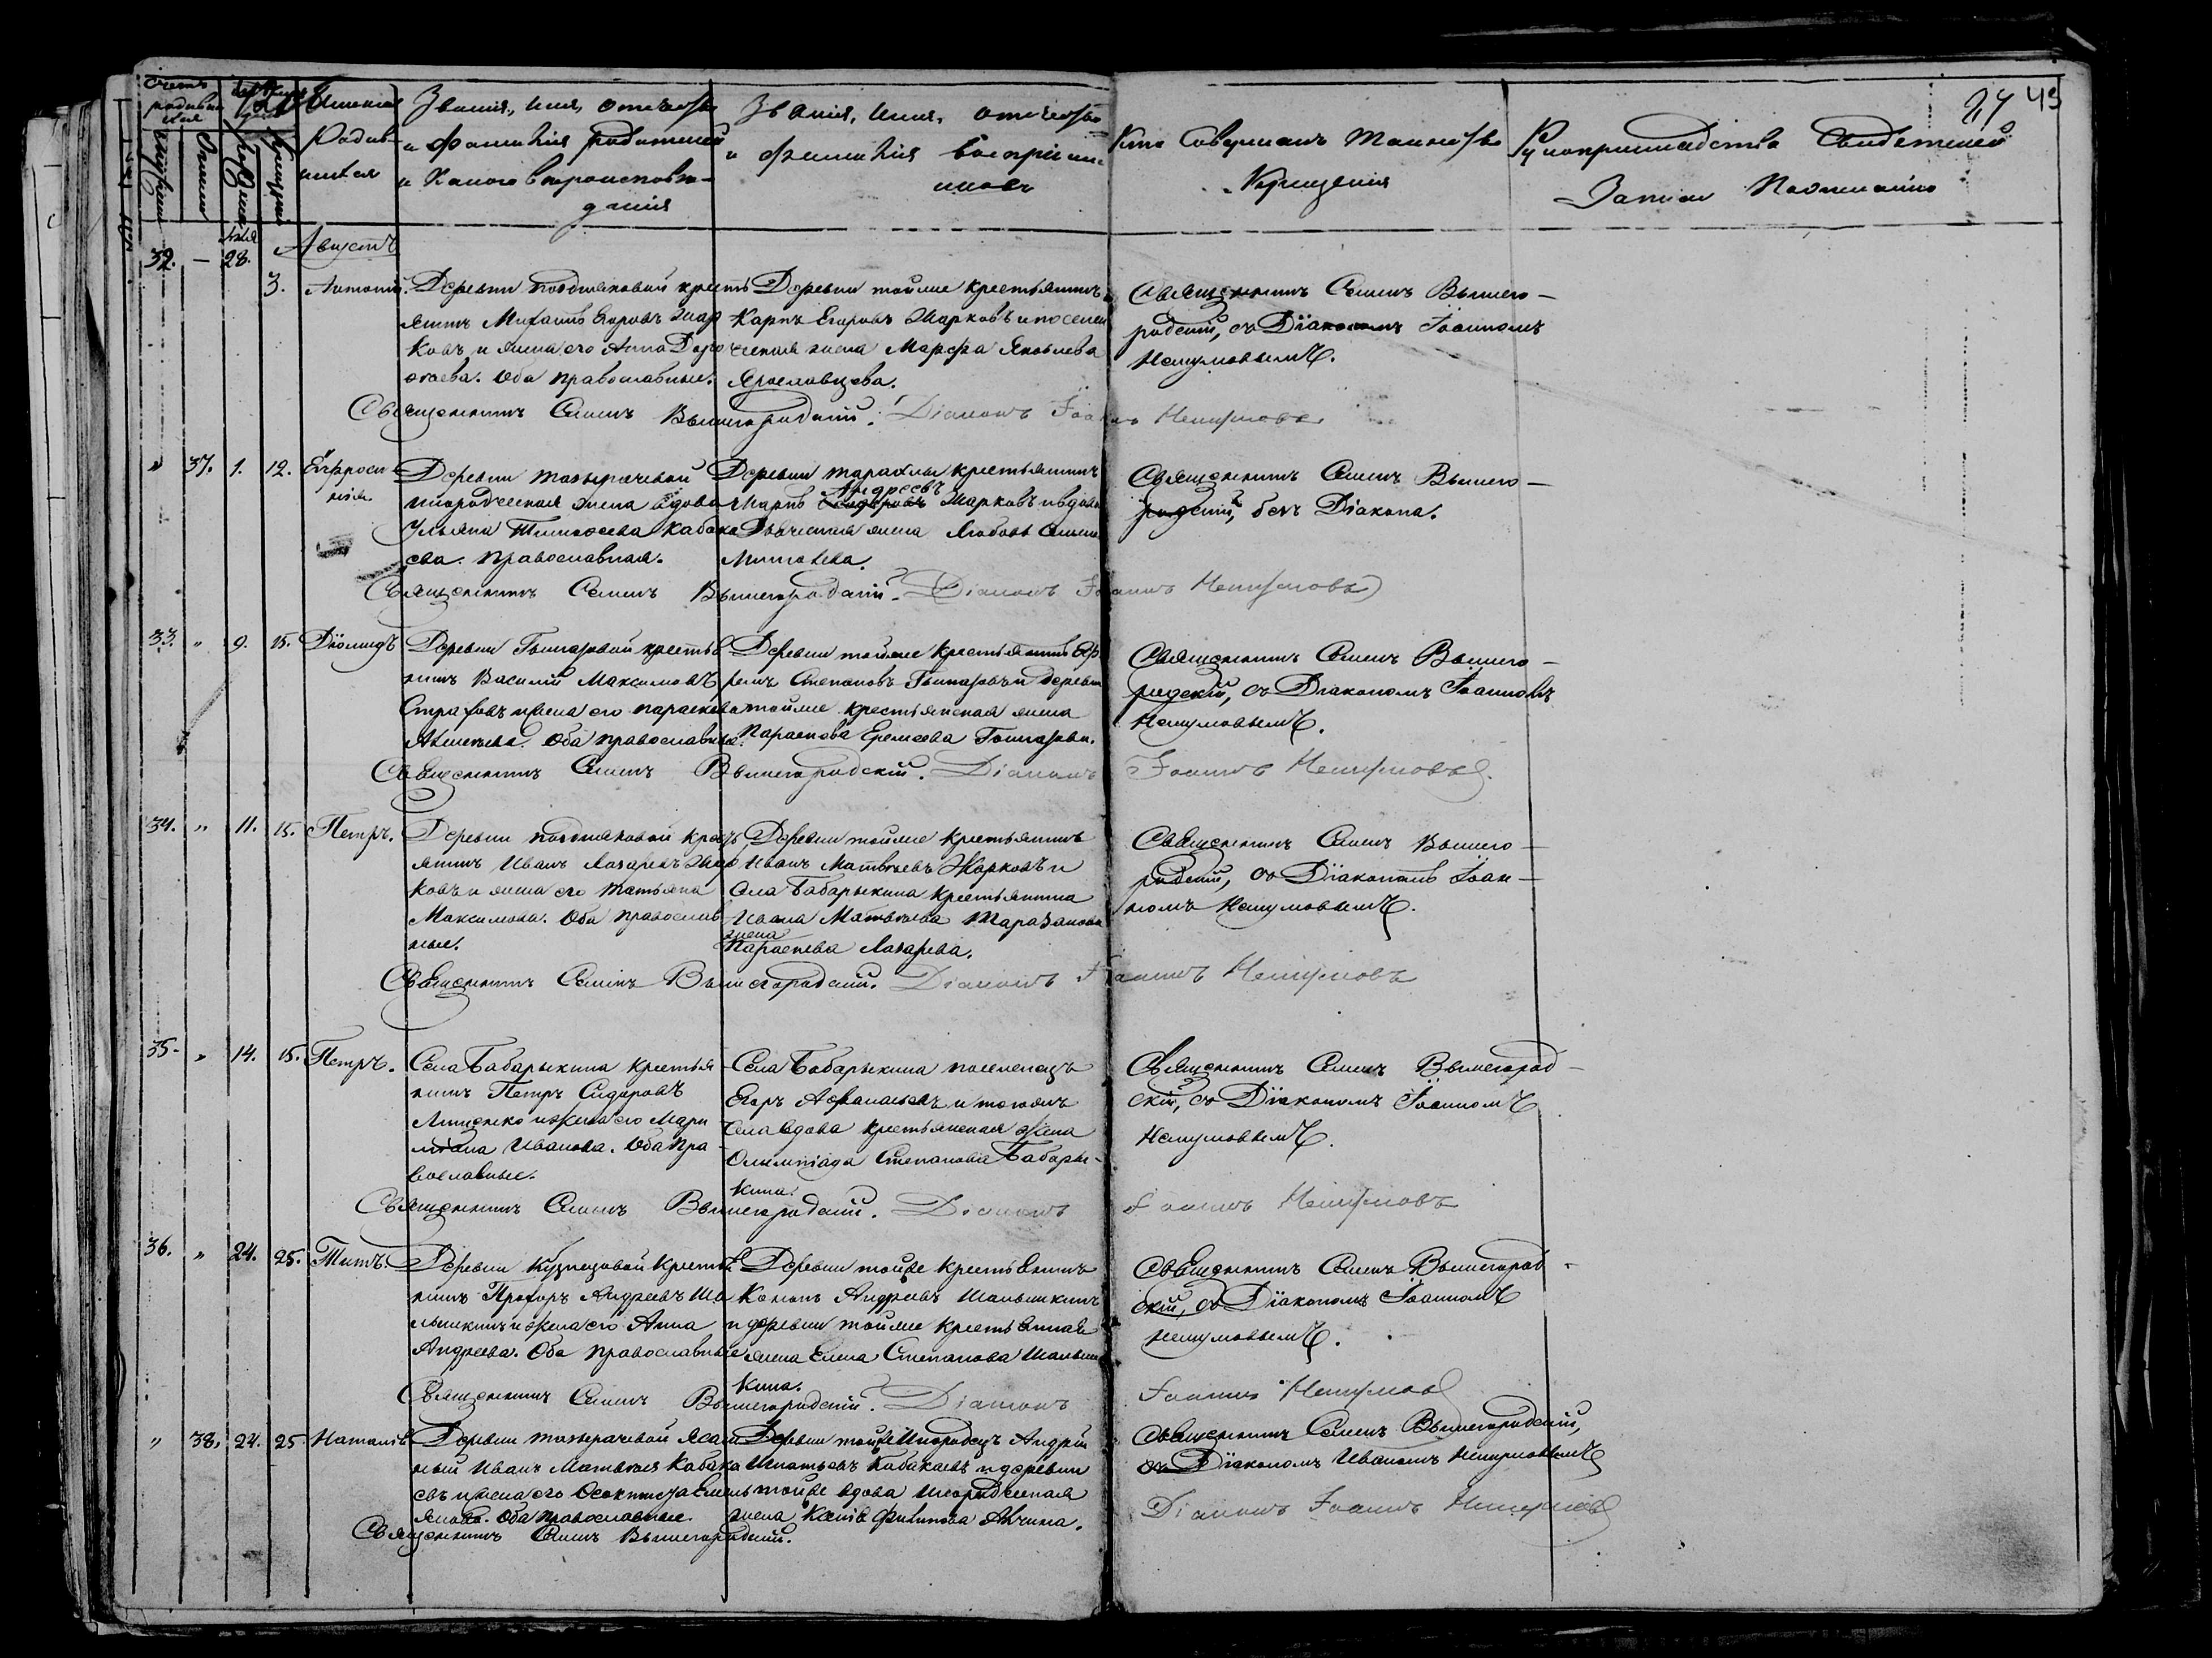 24 45
Счетъ родивш
Мужеска
Женска
Рожденія
Крещенія
Имена Родив-
шихся
Званіе, имя, отчество
и фамилія родителей
и какого вѣроисповѣ-
данія
Званіе, имя, отчество
и фамилія воспріем-
никовъ
Кто совершалъ таинство
Крещенія
Рукоприкладство свидѣтелей
записи по желанію
Августъ
32. — 28.
3. Антоній.
Деревни крестъ
янинъ Михаилъ Егоровъ Жар
ковъ и жена его Анна Доро
ѳеева. Оба православные.
Деревни тойже крестьянинъ
Карпъ Егоровъ Жарковъ и поселен
ческая жена Марѳа Яковлева
Ярославцева.
Священникъ Семенъ Вышего-
родскій, съ Діакономъ Іоанномъ
Неумовымъ.
Священникъ Семенъ Вышегородскій. Діаконъ Іоаннъ Неумовъ
" 37. 1. 12. Евфроси
нія.
Деревни
инородческая жена вдова
Ульяна Тимоѳеева Кабака
ева. Православная.
Деревни крестьянинъ
Андреевъ
Марко Жарковъ и вдова
жена Любовь
Священникъ Семенъ Вышего-
родскій, безъ Діакона.
Священникъ Семенъ Вышегородскій. Діаконъ Іоаннъ Неумовъ
33. " 9. 15. Діомидъ
Деревни крестья
нинъ Василій Максимовъ
Страховъ и жена его Параскева
Оба православные.
Деревни тойже крестьянинъ Еф
ремъ Степановъ и деревни
тойже крестьянская жена
Параскева Еремеева
Священникъ Семенъ Вышего-
родскій, съ Діакономъ Іоанномъ
Неумовымъ.
Священникъ Семенъ Вышегородскій. Діаконъ Іоаннъ Неумовъ.
34. " 11. 15. Петръ.
Деревни крестъ
янинъ Иванъ Лазаревъ Жар
ковъ и жена его Татьяна
Максимова. Оба православ
ные.
Деревни тойже крестьянинъ
Иванъ Матвѣевъ Жарковъ и
села Бабарыкина крестьянина
Ивана Матвѣева Тараканова
жена
Параскева Лазарева.
Священникъ Семенъ Вышего-
родскій, съ Діакономъ Іоан-
номъ Неумовымъ.
Священникъ Семенъ Вышегородскій. Діаконъ Іоаннъ Неумовъ
35. " 14. 15. Петръ.
Села Бабарыкина крестья
нинъ Петръ Сидоровъ
и жена его Марі
Иванова. Оба пра
вославные.
Села Бабарыкина поселенецъ
Егоръ Аѳанасьевъ и тогожъ
села вдова крестьянская жена
Олимпіада Степанова Бабары-
кина.
Священникъ Семенъ Вышегород-
скій, съ Діакономъ Іоанномъ
Неумовымъ.
Священникъ Семенъ Вышегородскій. Діаконъ Іоаннъ Неумовъ
36. " 24. 25. Титъ.
Деревни Кузнецовой крестья
нинъ Прохоръ Андреевъ Ша
лышкинъ и жена его Анна
Андреева. Оба православные
Деревни тойже крестьянинъ
Кононъ Андреевъ Шалышкинъ
и деревни тойже крестьянская
жена Елена Степанова Шалыш
кина.
Священникъ Семенъ Вышегород-
скій, съ Діакономъ Іоанномъ
Неумовымъ.
Священникъ Семенъ Вышегородскій. Діаконъ Іоаннъ Неумовъ
" 38. 24. 25. Наталія
Деревни ясаш
ный Иванъ Матвѣевъ Кабака
евъ и жена его Ѳеоктиста Емель
янова. Оба православные.
Деревни тойже инородецъ Андрей
Игнатьевъ Кабакаевъ и деревни
тойже вдова инородческая
жена Ксенія Филипова
Священникъ Семенъ Вышегородскій,
съ Діакономъ Иваномъ Неумовымъ
Діаконъ Іоаннъ Неумовъ
Священникъ Семенъ Вышегородскій.